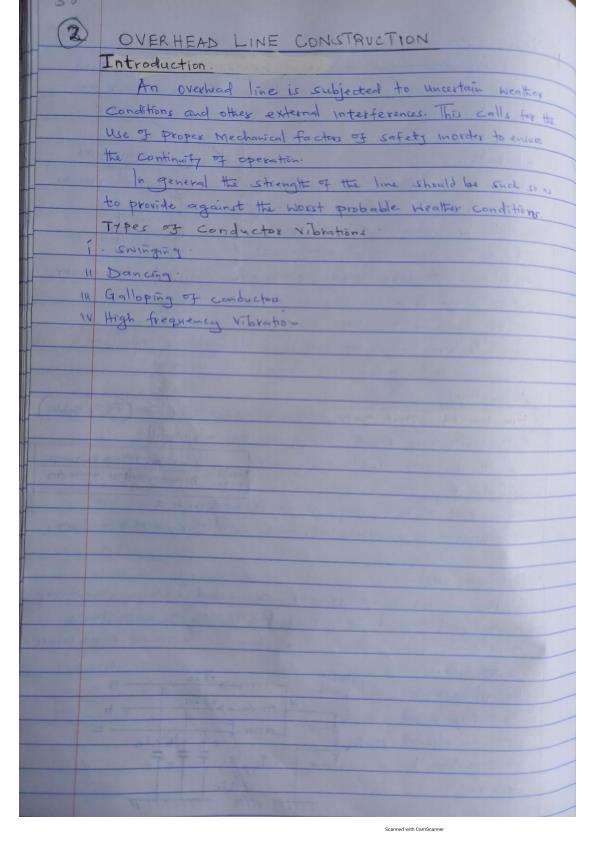 2 OVERHEAD LINE CONSTRUCTION
Introduction.
An overhead line is subjected to uncertain weather
Conditions and other external interferences. This calls for the
Use of proper Mechanical factors of safety inorder to ensure
the continuity of operation.
In general the strength of the line should be such so as
to provide against the worst probable weather conditions
Types of Conductor Vibrations
i. Swinging.
ii Dancing.
iii Galloping of conductors
iv High frequency Vibration
Scanned with CamScanner